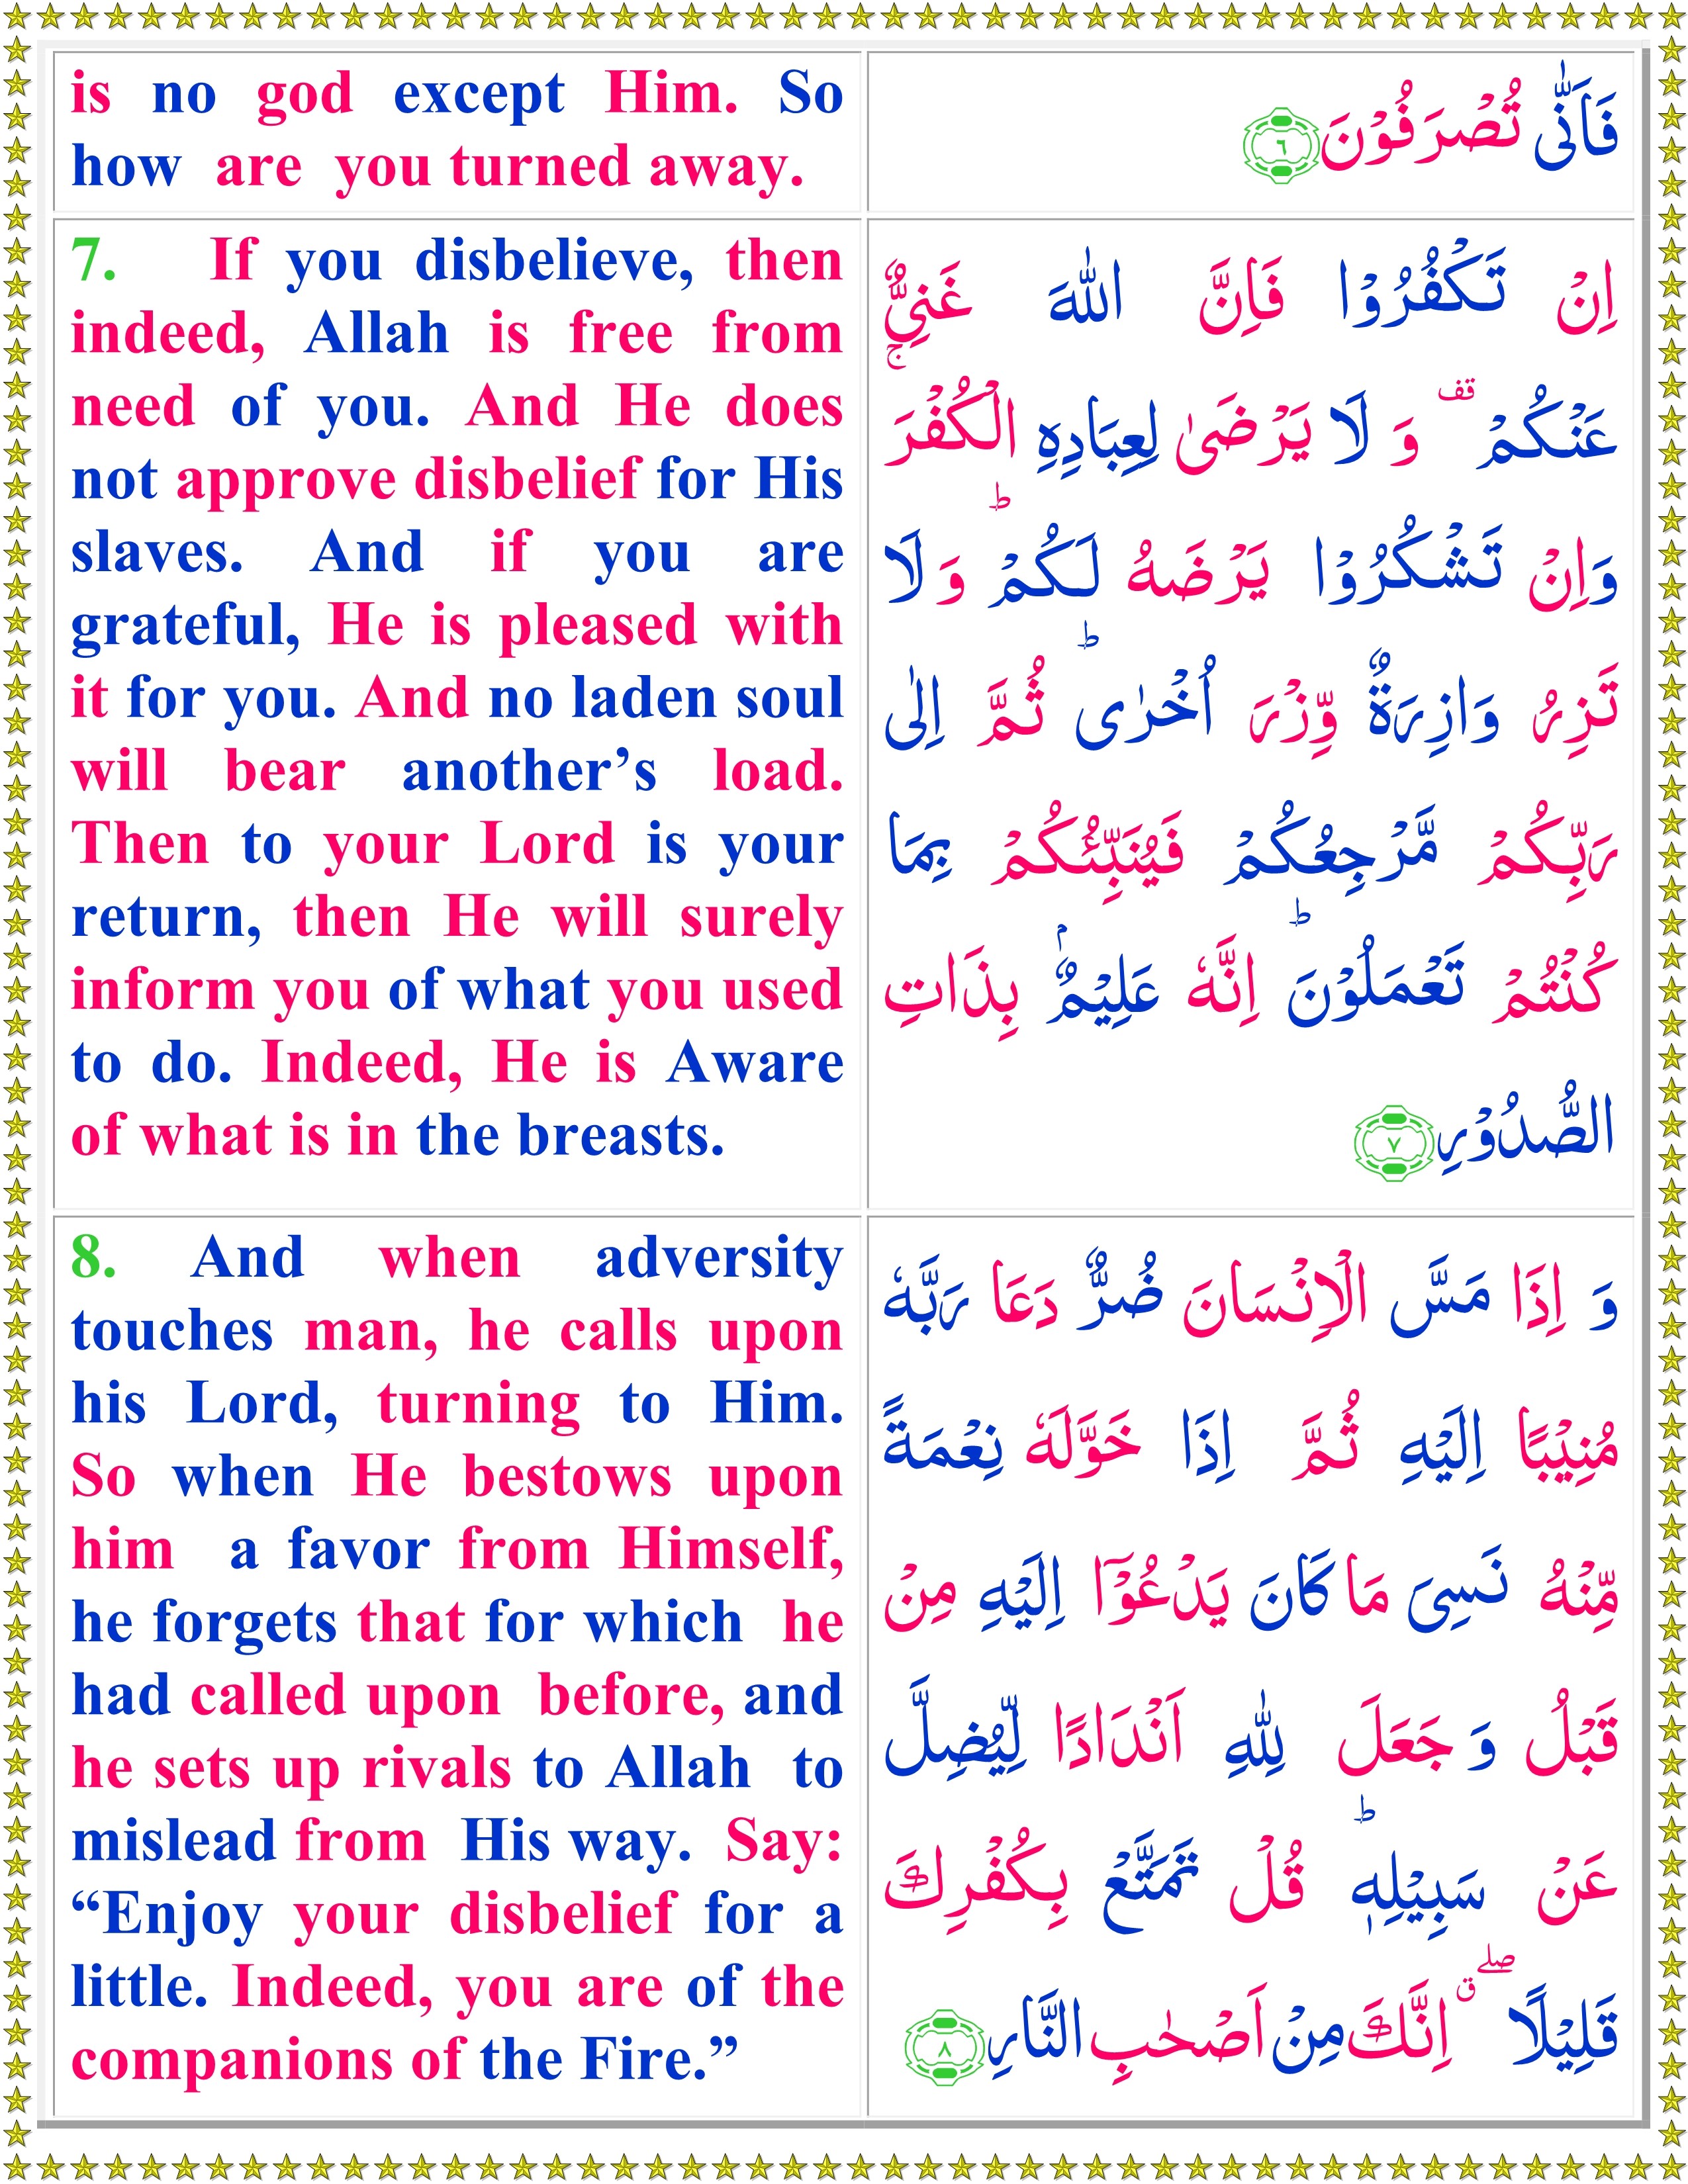 is no god except Him. So
how are you turned away.
فَاَنّٰى تُصْرَفُوْنَ ٦
7. If you disbelieve, then
indeed, Allah is free from
need of you. And He does
not approve disbelief for His
slaves. And if you are
grateful, He is pleased with
it for you. And no laden soul
will bear another’s load.
Then to your Lord is your
return, then He will surely
inform you of what you used
to do. Indeed, He is Aware
of what is in the breasts.
اِنْ تَكْفُرُوْا فَاِنَّ اللّٰهَ غَنِىٌّ
عَنْكُمْ ۚ قف وَ لَا يَرْضَىٰ لِعِبَادِهِ الْكُفْرَ
وَاِنْ تَشْكُرُوْا يَرْضَهُ لَكُمْ ؕ وَ لَا
تَزِرُ وَازِرَةٌ وِّزْرَ اُخْرٰى ؕ ثُمَّ اِلٰى
رَبِّكُمْ مَّرْجِعُكُمْ فَيُنَبِّئُكُمْ بِمَا
كُنْتُمْ تَعْمَلُوْنَ ؕ اِنَّهٗ عَلِيْمٌۢ بِذَاتِ
الصُّدُوْرِ ٧
8. And when adversity
touches man, he calls upon
his Lord, turning to Him.
So when He bestows upon
him a favor from Himself,
he forgets that for which he
had called upon before, and
he sets up rivals to Allah to
mislead from His way. Say:
“Enjoy your disbelief for a
little. Indeed, you are of the
companions of the Fire.”
وَ اِذَا مَسَّ الْاِنْسَانَ ضُرٌّ دَعَا رَبَّهٗ
مُنِيْبًا اِلَيْهِ ثُمَّ اِذَا خَوَّلَهٗ نِعْمَةً
مِّنْهُ نَسِىَ مَا كَانَ يَدْعُوْۤا اِلَيْهِ مِنْ
قَبْلُ وَ جَعَلَ لِلّٰهِ اَنْدَادًا لِّيُضِلَّ
عَنْ سَبِيْلِهٖ ؕ قُلْ تَمَتَّعْ بِكُفْرِكَ
قَلِيْلًا ۖ ق اِنَّكَ مِنْ اَصْحٰبِ النَّارِ ٨